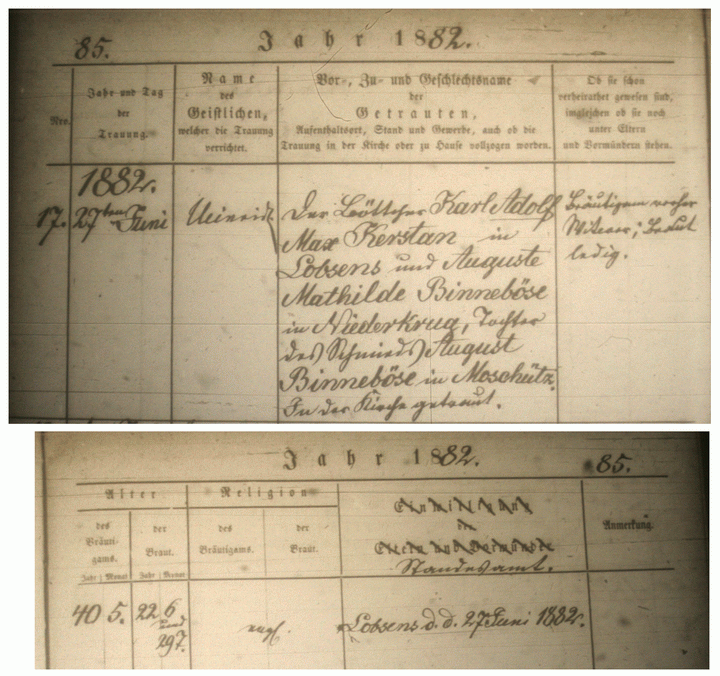 85.
Jahr 1882.
Nro.
Jahr und Tag
der
Trauung.
Name
des
Geistlichen,
welcher die Trauung
verrichtet.
Vor-, Zu- und Geschlechtsname
der
Getrauten,
Aufenthaltsort, Stand und Gewerbe, auch ob die
Trauung in der Kirche oder zu Hause vollzogen worden.
Ob sie schon
verheirathet gewesen sind,
imgleichen ob sie noch
unter Eltern
und Vormündern stehen.
1882.
17. 27ten Juni
Der Böttcher Karl Adolf
Max Kerstan in
Lobsens und Auguste
Mathilde Binneböse
in Niederkrug, Tochter
des Schmieds August
Binneböse in Moschütz.
In der Kirche getraut.
Bräutigam vorher
Witwer; Braut
ledig.
Jahr 1882.
85.
Alter
des
Bräuti-
gams.
der
Braut.
Jahr Monat Jahr Monat
Religion
des
Bräutigams.
der
Braut.
Einwilligung
der
Eltern und Vormünder
Standesamt.
Anmerkung.
40 5. 22 6
29 7.
evgl.
Lobsens d. d. 27 Juni 1882.